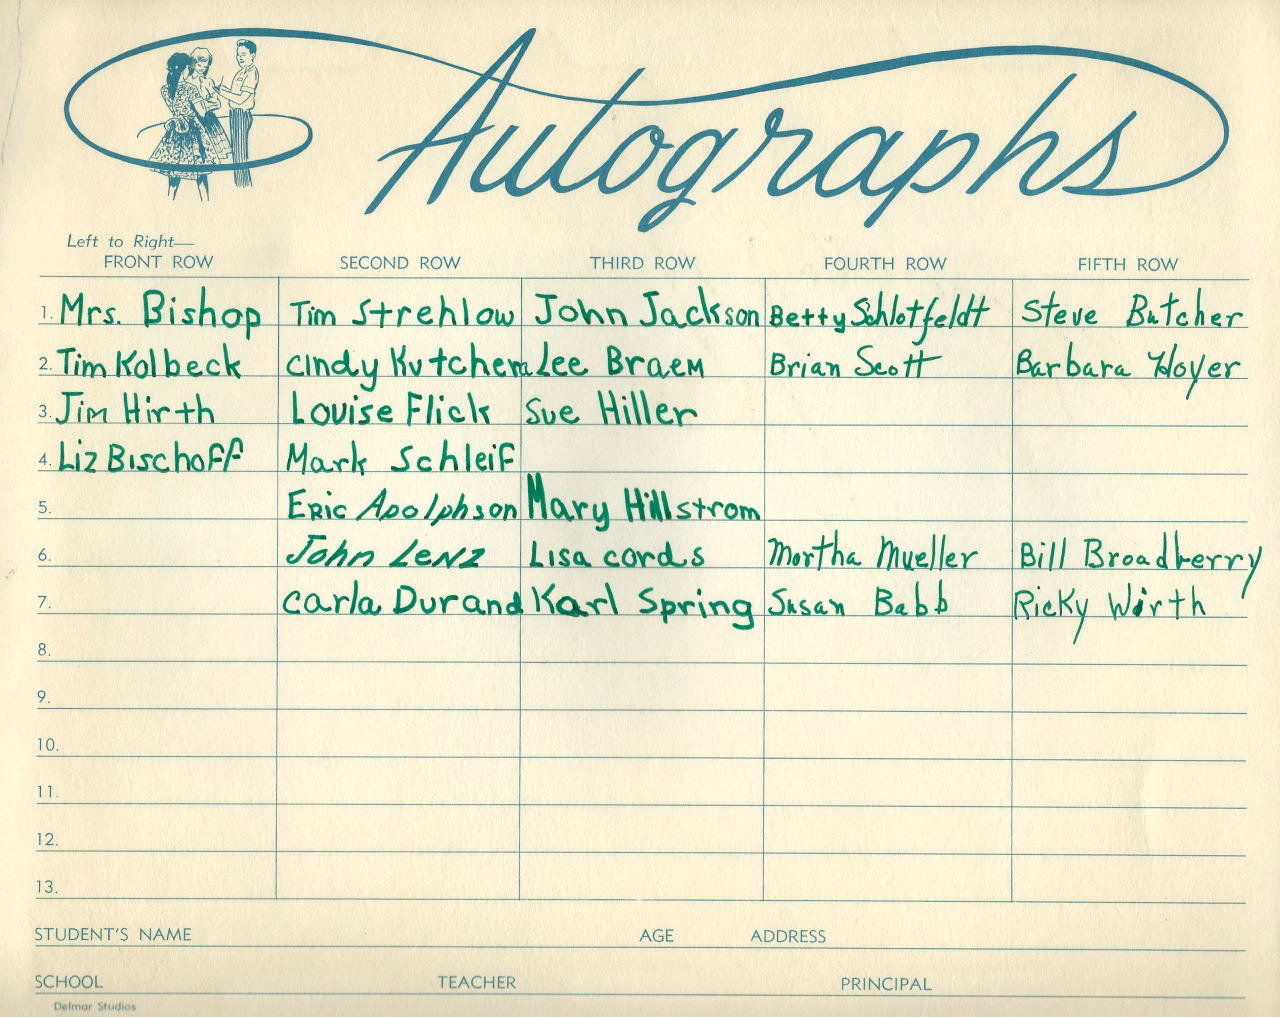 Autographs
Left to Right—
FRONT ROW SECOND ROW THIRD ROW FOURTH ROW FIFTH ROW
1. Mrs. Bishop Tim Strehlow John Jackson Betty Schlotfeldt Steve Butcher
2. Tim Kolbeck Cindy Kutchera Lee Braem Brian Scott Barbara Hoyer
3. Jim Hirth Louise Flick Sue Hiller
4. Liz Bischoff Mark Schleif
5. Eric Adolphson Mary Hillstrom
6. John Lenz Lisa cords Martha Mueller Bill Broadberry
7. Carla Durand Karl Spring Susan Babb Ricky Wirth
8.
9.
10.
11.
12.
13.
STUDENT'S NAME AGE ADDRESS
SCHOOL TEACHER PRINCIPAL
Delmar Studios